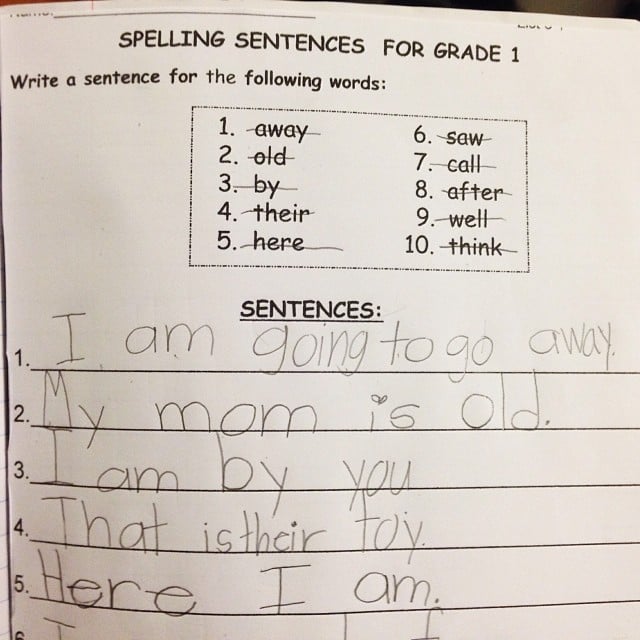 SPELLING SENTENCES FOR GRADE 1
Write a sentence for the following words:
1. away 6. saw
2. old 7. call
3. by 8. after
4. their 9. well
5. here 10. think
SENTENCES:
1. I am going to go away.
2. My mom is old.
3. I am by you
4. That is their toy.
5. Here I am.